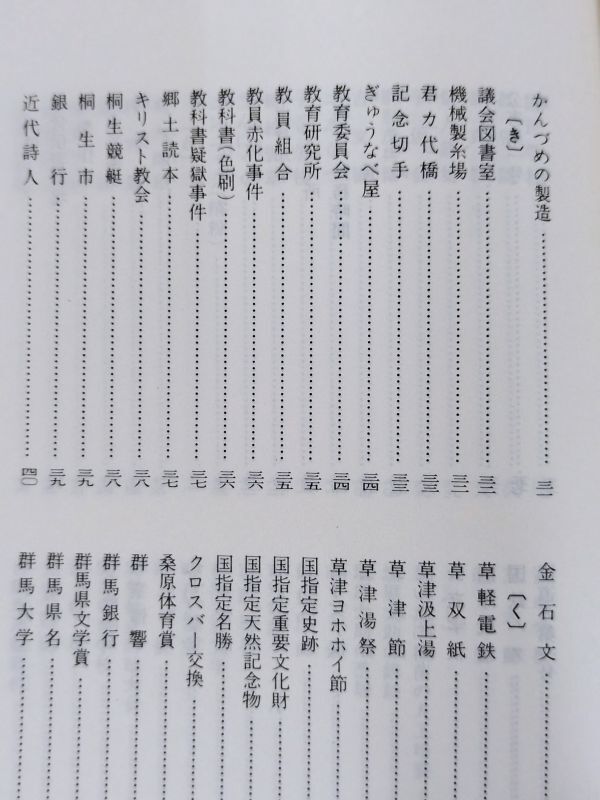 かんづめの製造……三一
〔き〕
議会図書室……三二
機械製糸場……三二
君カ代橋……三三
記念切手……三三
ぎゅうなべ屋……三四
教育委員会……三四
教育研究所……三五
教員組合……三五
教員赤化事件……三六
教科書(色刷)……三六
教科書疑獄事件……三七
郷土読本……三七
キリスト教会……三八
桐生競艇……三八
桐生市……三九
銀行……三九
近代詩人……四〇
金石文……
〔く〕
草軽電鉄……
草双紙……
草津汲上湯……
草津節……
草津湯祭……
草津ヨホホイ節……
国指定史跡……
国指定重要文化財……
国指定天然記念物……
国指定名勝……
クロスバー交換……
桑原体育賞……
群響……
群馬銀行……
群馬県文学賞……
群馬県名……
群馬大学……